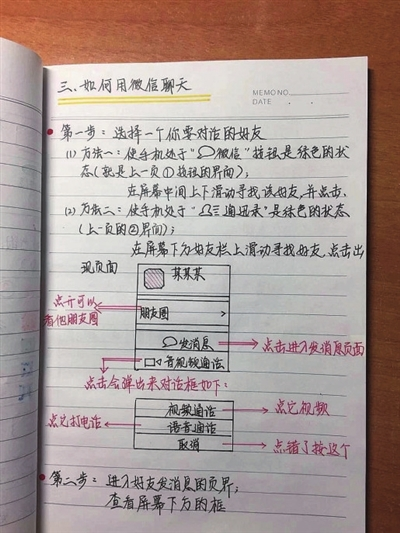 三、如何用微信聊天
MEMO NO.
DATE . .
第一步：选择一个你要对话的好友
(1) 方法一：使手机处于“微信”按钮是绿色的状
态（就是上一页①按钮的界面）；
在屏幕中间上下滑动寻找该好友，并点击.
(2) 方法二：使手机处于“通讯录”是绿色的状态
（上一页的②界面）；
在屏幕下方好友栏上滑动寻找好友，点击出
现页面
某某某
点开可以
看他朋友圈
朋友圈 >
发消息
点击进入发消息页面
音视频通话
点击会弹出来对话框如下：
视频通话
点它视频
点它打电话
语音通话
取消
点错了按这个
第二步：进入好友发消息的页界；
查看屏幕下方的框